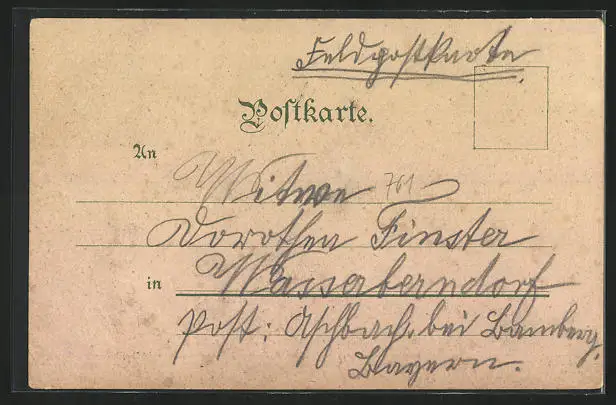 Feldpostkarte
Postkarte.
An
Witwe 701
Dorothea Finster
in Wasserberndorf
Post: Aschbach, bei Bamberg,
Bayern.